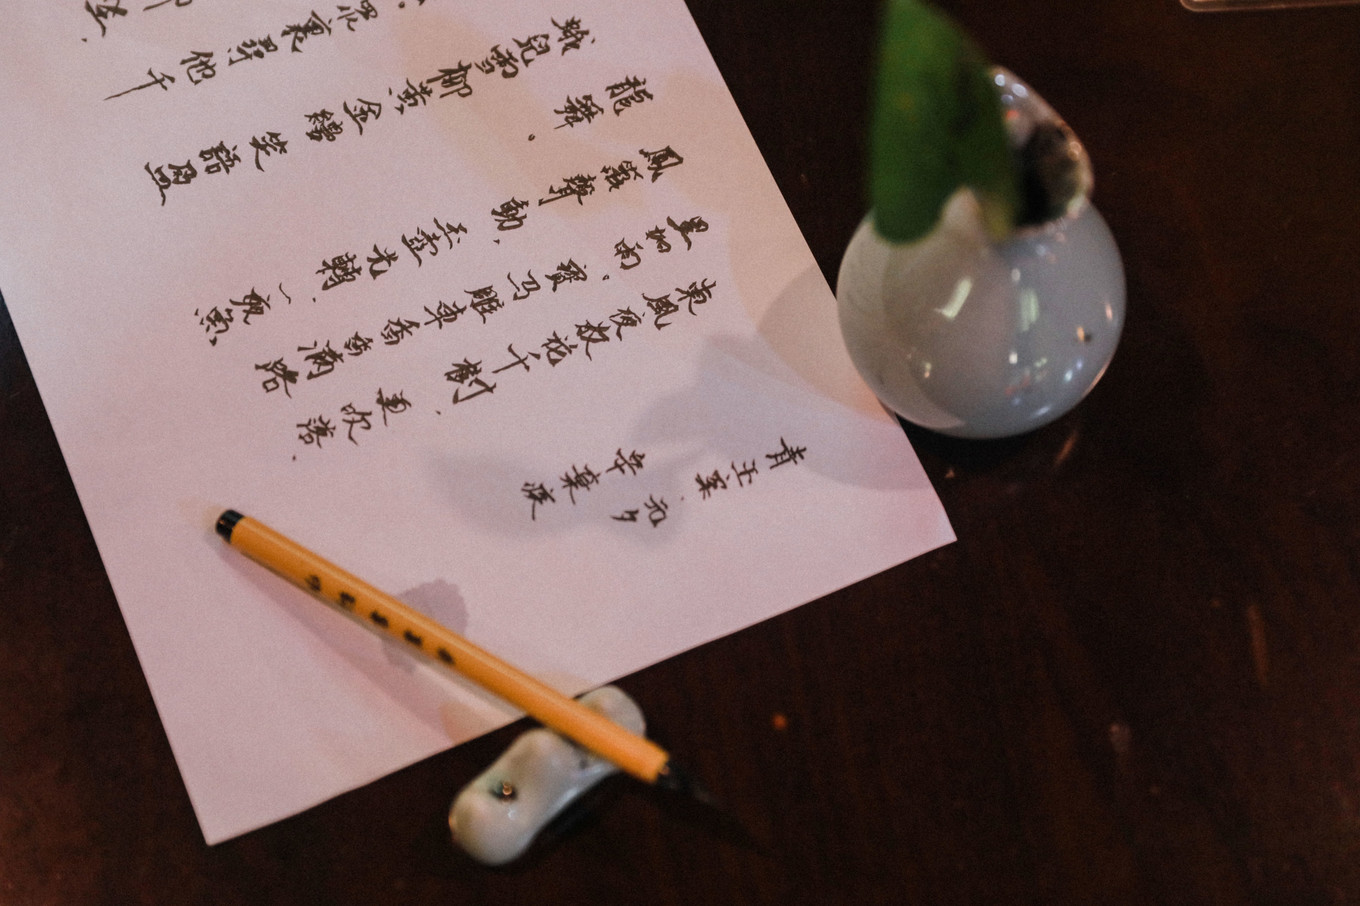 青玉案·元夕
辛棄疾
東風夜放花千樹,更吹落、
星如雨。寶马雕車香香滿路
鳳簫聲動,玉壺光轉,一夜魚
龍舞。
蛾兒雪柳黃金縷 笑語盈
眾裏尋他千